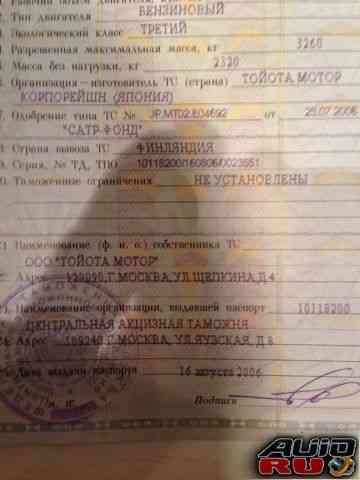 Тип двигателя БЕНЗИНОВЫЙ
Экологический класс ТРЕТИЙ
Разрешенная максимальная масса, кг 3260
Масса без нагрузки, кг 2320
Организация – изготовитель ТС (страна) ТОЙОТА МОТОР
КОРПОРЕЙШН (ЯПОНИЯ)
Одобрение типа ТС № от 25.07.2006
"САТР-ФОНД"
Страна вывоза ТС ФИНЛЯНДИЯ
Серия, № ТД, ТПО 10118200/160806/0023551
Таможенные ограничения НЕ УСТАНОВЛЕНЫ
Наименование (ф. и. о.) собственника ТС
ООО "ТОЙОТА МОТОР"
Адрес 129090, Г.МОСКВА, УЛ.ЩЕПКИНА, Д 4
Наименование организации, выдавшей паспорт 10118200
ЦЕНТРАЛЬНАЯ АКЦИЗНАЯ ТАМОЖНЯ
Адрес 109240, Г.МОСКВА, УЛ.ЯУЗСКАЯ, Д 8
Дата выдачи паспорта 16 августа 2006
М. П. Подпись
AUTO
RU